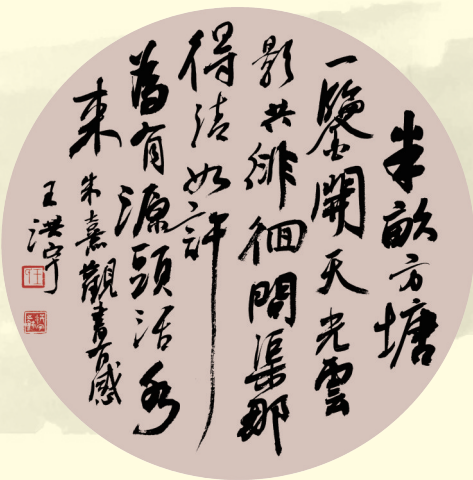 半畝方塘
一鑒開天光雲
影共徘徊問渠那
得清如許
為有源頭活水
来 朱熹觀書有感
王洪